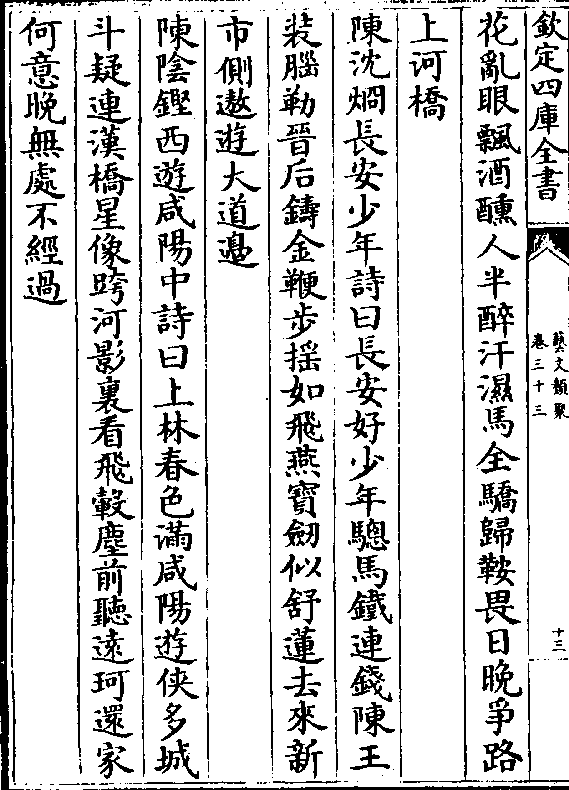 欽定四庫全書
藝文類聚
卷三十三
十三
花亂眼飄酒醺人半醉汗濕馬全驕歸鞍畏日晚爭路
上河橋
陳沈烱長安少年詩曰長安好少年驄馬鐵連錢陳王
裝腦勒晉后鑄金鞭步搖如飛燕寳劒似舒蓮去來新
市側遨遊大道邉
陳陰鏗西遊咸陽中詩曰上林春色滿咸陽遊俠多城
斗疑連漢橋星像跨河影裏看飛轂塵前聽遠珂還家
何意晚無處不經過